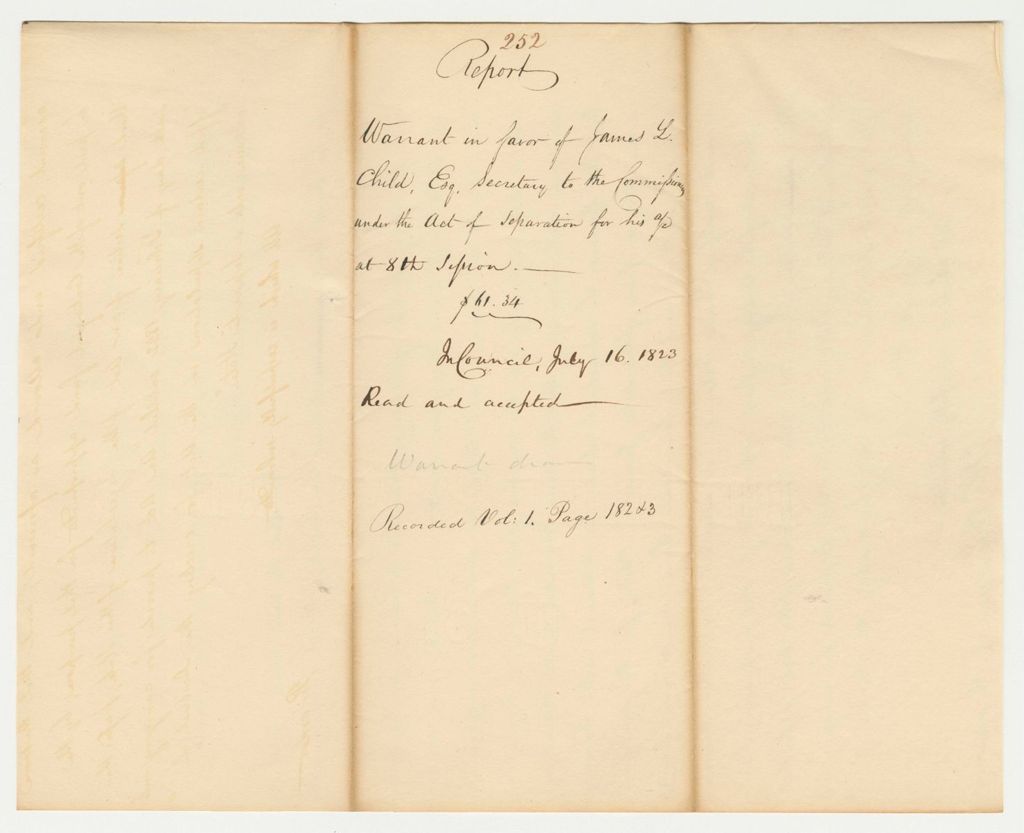 252
Report
Warrant in favor of James L.
Child, Esq. Secretary to the Commissioners
under the Act of Separation for his a/c
at 8th Session.
$61.34
In Council, July 16. 1823
Read and accepted
Warrant drawn
Recorded Vol: 1. Page 182 & 3